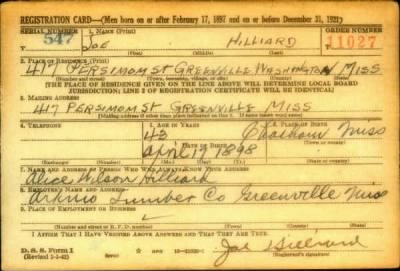 REGISTRATION CARD—(Men born on or after February 17, 1897 and on or before December 31, 1921)
SERIAL NUMBER 1. NAME (Print) ORDER NUMBER
547 JOE HILLIARD 11027
(First) (Middle) (Last)
2. PLACE OF RESIDENCE (Print)
417 PERSIMOM ST GREENVILLE WASHINGTON MISS
(Number and street) (Town, township, village, or city) (County) (State)
[THE PLACE OF RESIDENCE GIVEN ON THE LINE ABOVE WILL DETERMINE LOCAL BOARD
JURISDICTION; LINE 2 OF REGISTRATION CERTIFICATE WILL BE IDENTICAL]
3. MAILING ADDRESS
417 PERSIMOM ST GREENVILLE MISS
[Mailing address if other than place indicated on line 2. If same insert word same]
4. TELEPHONE 5. AGE IN YEARS 6. PLACE OF BIRTH
43
DATE OF BIRTH Miss
April 17 1898
(Exchange) (Number) (Mo.) (Day) (Yr.) (State or country)
7. NAME AND ADDRESS OF PERSON WHO WILL ALWAYS KNOW YOUR ADDRESS
Alice Wilson Hilliard
8. EMPLOYER'S NAME AND ADDRESS
Lumber Co Greenville Miss
9. PLACE OF EMPLOYMENT OR BUSINESS
(Number and street or R. F. D. number) (Town) (County) (State)
I AFFIRM THAT I HAVE VERIFIED ABOVE ANSWERS AND THAT THEY ARE TRUE.
D. S. S. Form 1
Joe Hilliard
(Registrant's signature)